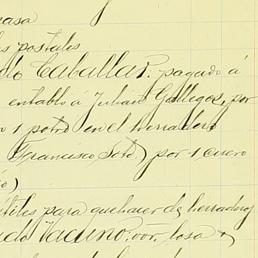 casa
postales
do Caballar. pagado á
entabló á Julian Gallegos, por
o 1 potro en el herradero
Francisco Soto, por 1 cuero
útiles para quehacer de herraderos
do Vacuno. por losa